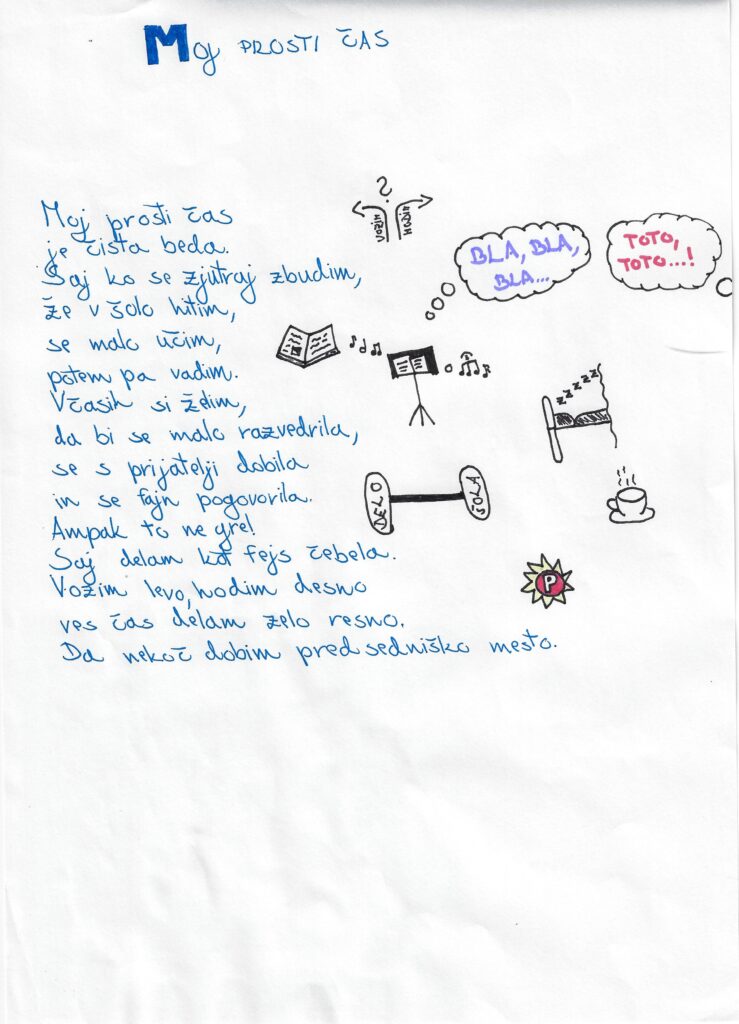 Moj PROSTI ČAS
Moj prosti čas
je čista beda.
Saj ko se zjutraj zbudim,
že v šolo hitim,
se malo učim,
potem pa vadim.
Včasih si želim,
da bi se malo razvedrila,
se s prijatelji dobila
in se fajn pogovorila.
Ampak to ne gre!
Saj delam kot fejs čebela.
Vozim levo, hodim desno
ves čas delam zelo resno.
Da nekoč dobim predsedniško mesto.
?
BLA, BLA,
BLA...
TOTO,
TOTO...!
zzzzz
DELO
ŠOLA
P